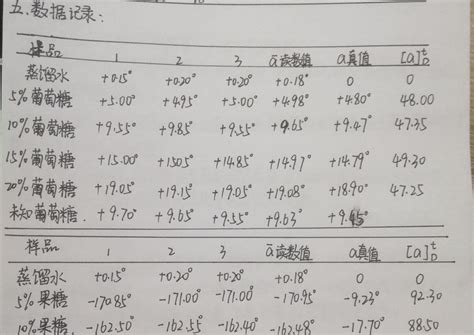 五.数据记录:
样品 1 2 3 ā读数值 a真值 [a]ᵗD
蒸馏水 +0.15° +0.20° +0.20° +0.18° 0 0
5%葡萄糖 +5.00° +4.95° +5.00° +4.98° +4.80° 48.00
10%葡萄糖 +9.55° +9.85° +9.55° +9.65° +9.47° 47.35
15%葡萄糖 +15.00° +15.05° +14.85° +14.97° +14.79° 49.30
20%葡萄糖 +19.05° +19.15° +19.05° +19.08° +18.90° 47.25
未知葡萄糖. +9.70° +9.65° +9.55° +9.63° +9.45°
样品 1 2 3 ā读数值 a真值 [a]ᵗD
蒸馏水 +0.15° +0.20° +0.20° +0.18° 0 0
5%果糖 -170.85° -171.00° -171.00° -170.95° -9.23° 92.30
10%果糖 -162.50° -162.55° -162.40° -162.48° -17.70° 88.50